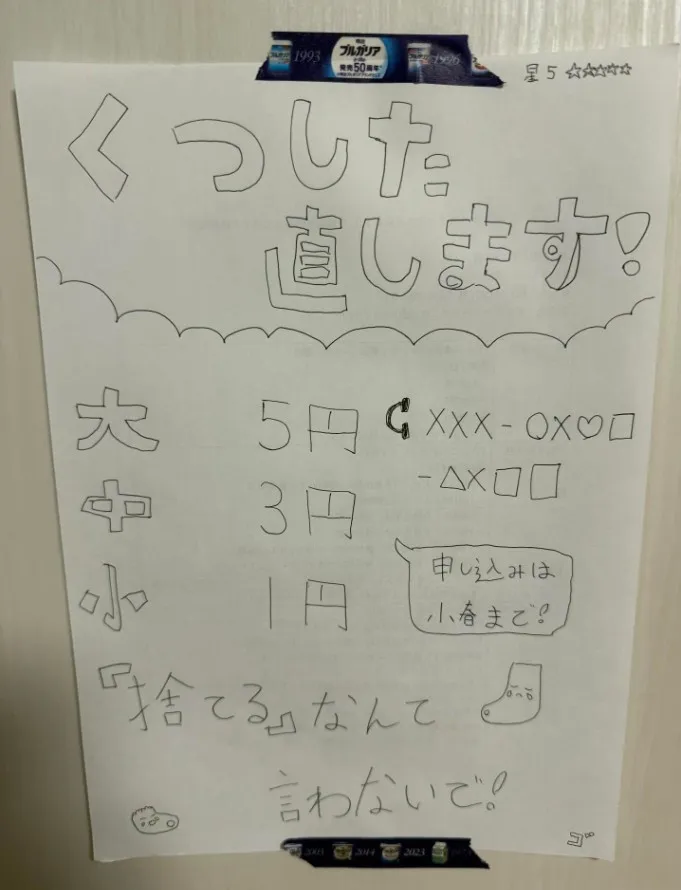 1993
明治
ブルガリア
発売50周年
1996
星5 ☆☆☆☆☆
くつした
直します!
大 5円
中 3円
小 1円
XXX-○X♡□
-△X□□
申し込みは
小春まで!
『捨てる』なんて
言わないで!
ゴ
2003 2014 2023